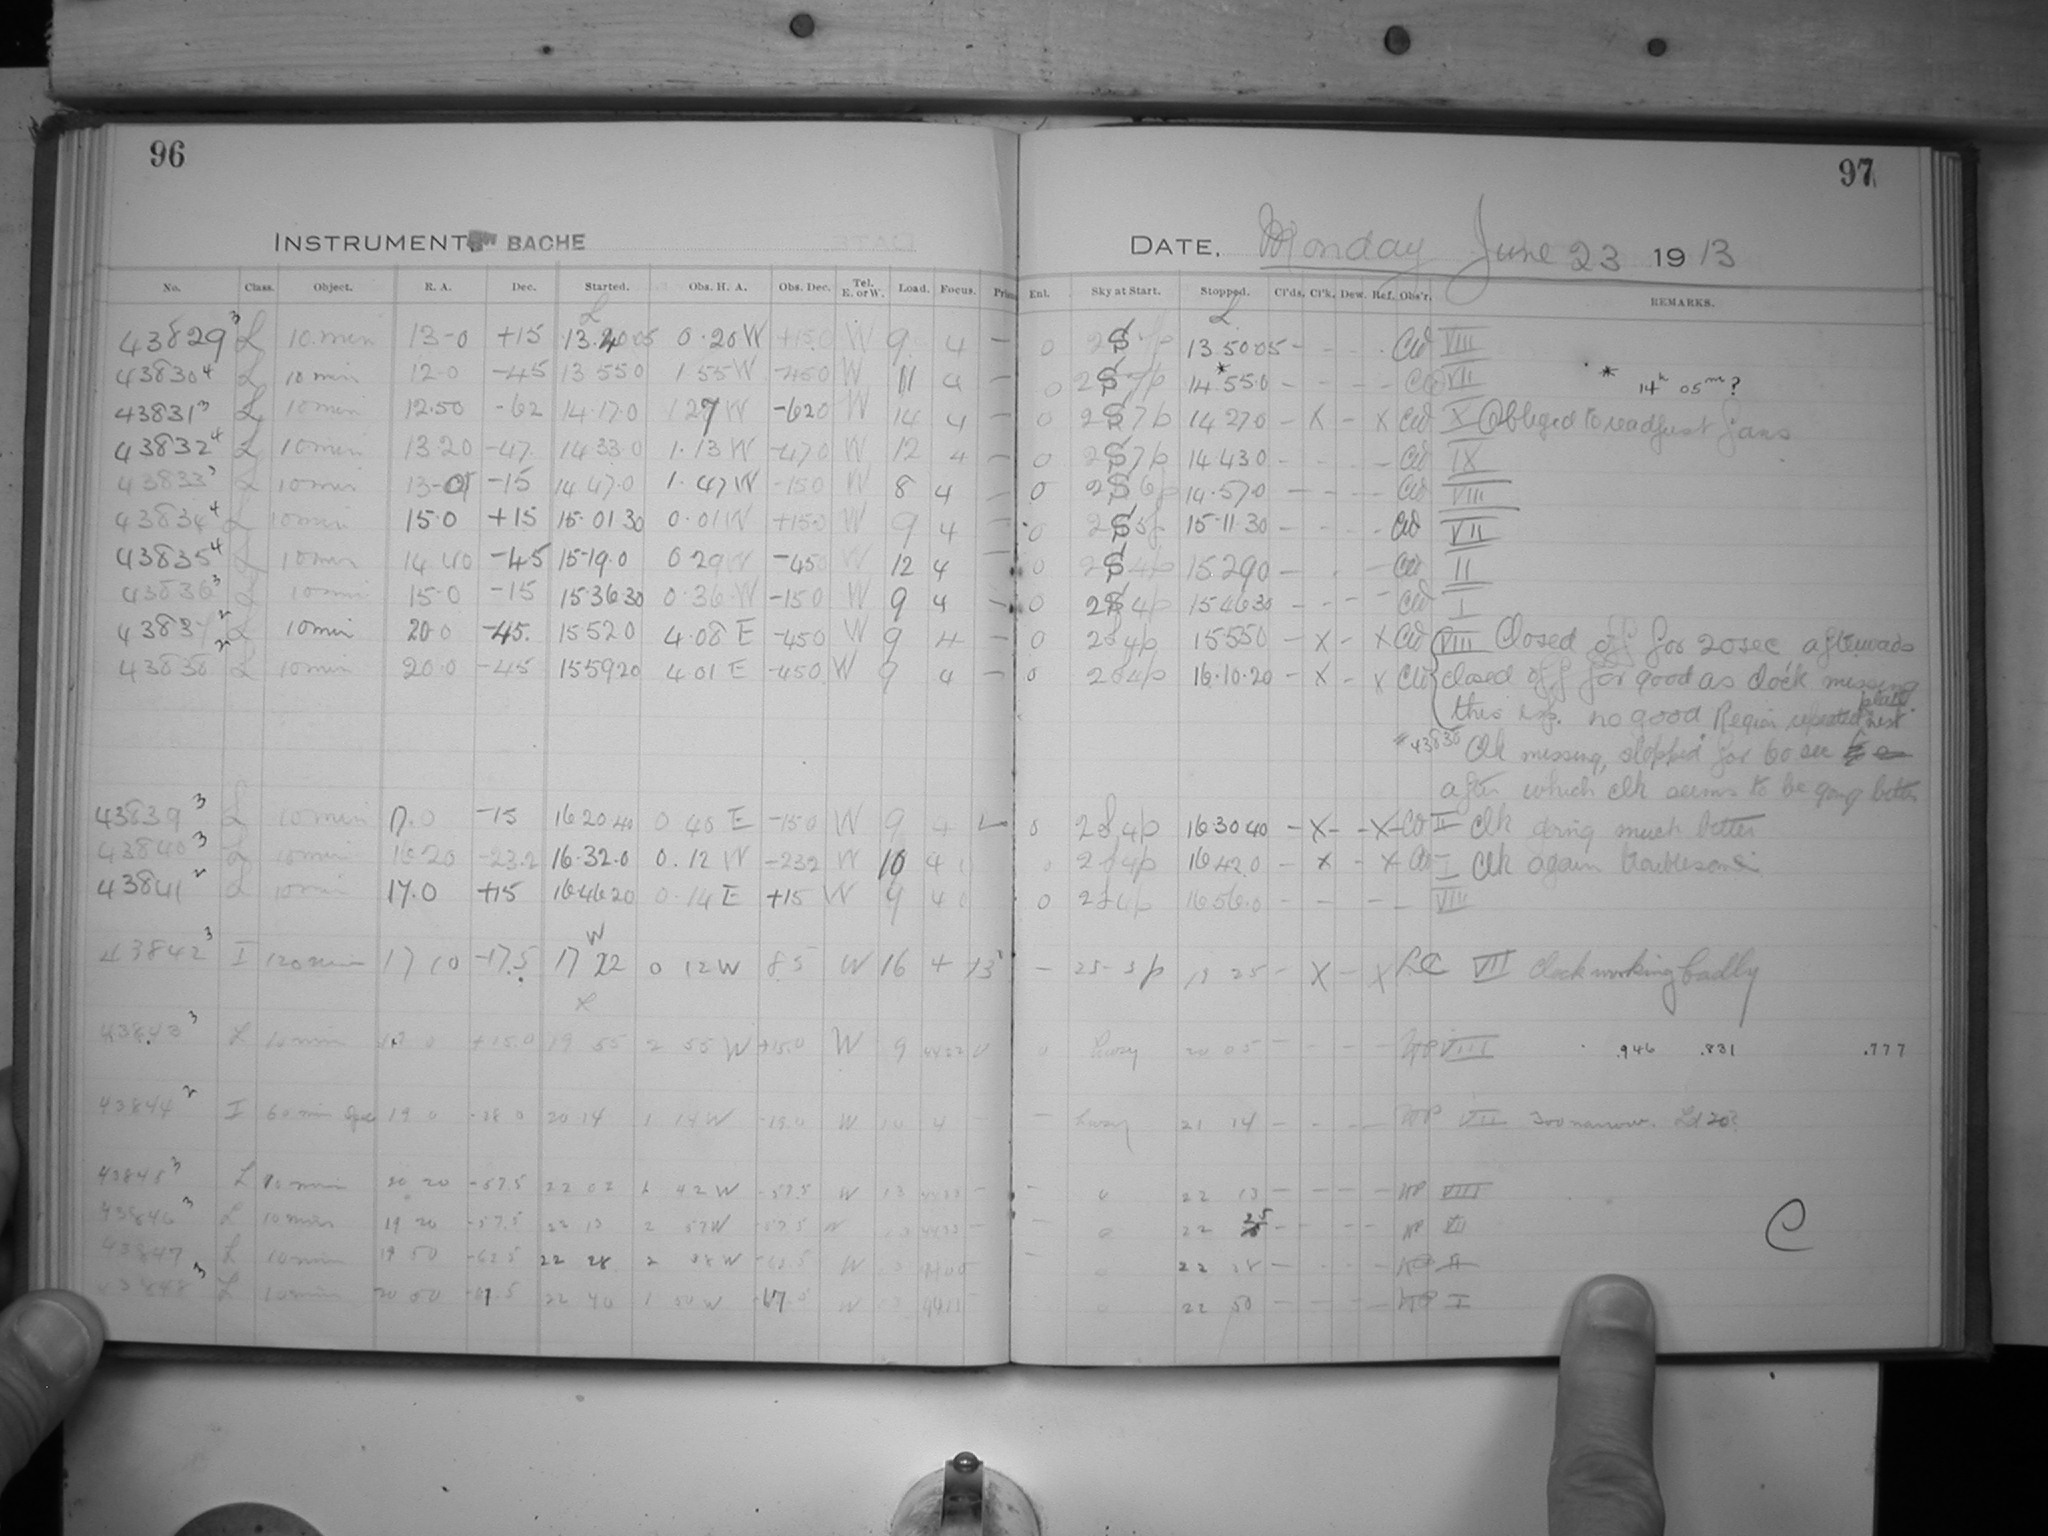 96
97
INSTRUMENT BACHE
DATE. Monday June 23 1913
No. Class. Object. R. A. Dec. Started. Obs. H. A. Obs. Dec. Tel. E. or W. Load. Focus. Enl. Sky at Start. Stopped. Cl'ds. Cl'k. Dew. Ref. Obs'r. REMARKS.
43829 3 L 10 min 13-0 +15 0.20 W +15.0 W 9 4 – 0 13.50.05 – - - - CW VIII
43830 4 L 10 min 12.0 -45 13 55.0 1.55 W -45.0 W 11 4 – 0 14*55.0 – – – – CW VII * 14h 05m?
43831 3 L 10 min 12.50 -62 14.17.0 1 27 W -62.0 W 14 4 – 0 2S 7p 14 27.0 – X – X CW X Obliged to readjust fans
43832 4 L 10 min 13.20 -47. 14 33.0 1.13 W -47.0 W 12 4 – 0 2S 7p 14.43.0 – - - - CW IX
43833 3 L 10 min -15 14.47.0 1.47 W -15.0 W 8 4 – 0 2S 6p 14.57.0 – – – – CW VIII
43834 4 L 10 min 15.0 +15 15.01.30 0.01 W +15.0 W 9 4 – 0 15-11.30 – – – – CW VII
43835 4 L 10 min 14 40 -45 15-19.0 0 29 W -45.0 W 12 4 – 0 2S 4p 15.29.0 – - – – CW II
43836 3 L 10 min 15.0 -15 15.36.30 0.36 W -15.0 W 9 4 – 0 2S 4p 15 46 30 – – – – CW I
43837 2 L 10 min 20.0 -45. 15 52.0 4.08 E -45.0 W 9 4 – 0 2S 4p 15 55.0 – X – X CW VIII Closed off for 20 sec afterwards
43838 2 L 10 min 20.0 -45 15 59 20 4.01 E -45.0 W 9 4 – 0 2S 4p 16.10.20 – X – X CW closed off for good as clock missing
this exp. no good Region repeated next plate.
* 43838 Clk missing, stopped for 60 sec
after which clk seems to be going better
43839 3 L 10 min 17.0 -15 16 20 40 0 40 E -15.0 W 9 4 0 2S 4p 16 30 40 – X – – X – CW II Clk going much better
43840 3 L 10 min 16 20 -23.2 16.32.0 0.12 W -23.2 W 10 4 0 2S 4p 16 42.0 – X – X CW I Clk again troublesome
43841 2 L 10 min 17.0 +15 16 46 20 0.14 E +15 W 9 4 0 0 2S 4p 16 56.0 – – – – VIII
43842 3 I 120 min 17 10 -17.5 0 12 W 8 5 W 16 4 13 – 19 25 – X – X LC VII Clock working badly
43843 3 L 10 min +15.0 19 55 2 55 W +15.0 W 9 0 0 Hazy 20 05 - - - - VIII .946 .831 .777
43844 2 I 60 min 19 0 20 14 1 14 W W 10 4 – – Hazy 21 14 – – – – VII Too narrow.
43845 3 L 10 min 20 20 -57.5 22 02 42 W -57.5 W 13 – – 0 22 13 – – – – VIII
43846 3 L 10 min 19 20 -57.5 22 13 2 57 W -57.5 W – – 0 22 25 – – – – VII C
43847 L 10 min 19 50 -62.5 22 28 2 38 W W – 22 38 – - - – II
43848 3 L 10 min 20 50 22 40 1 50 W W 0 22 50 – – – – I